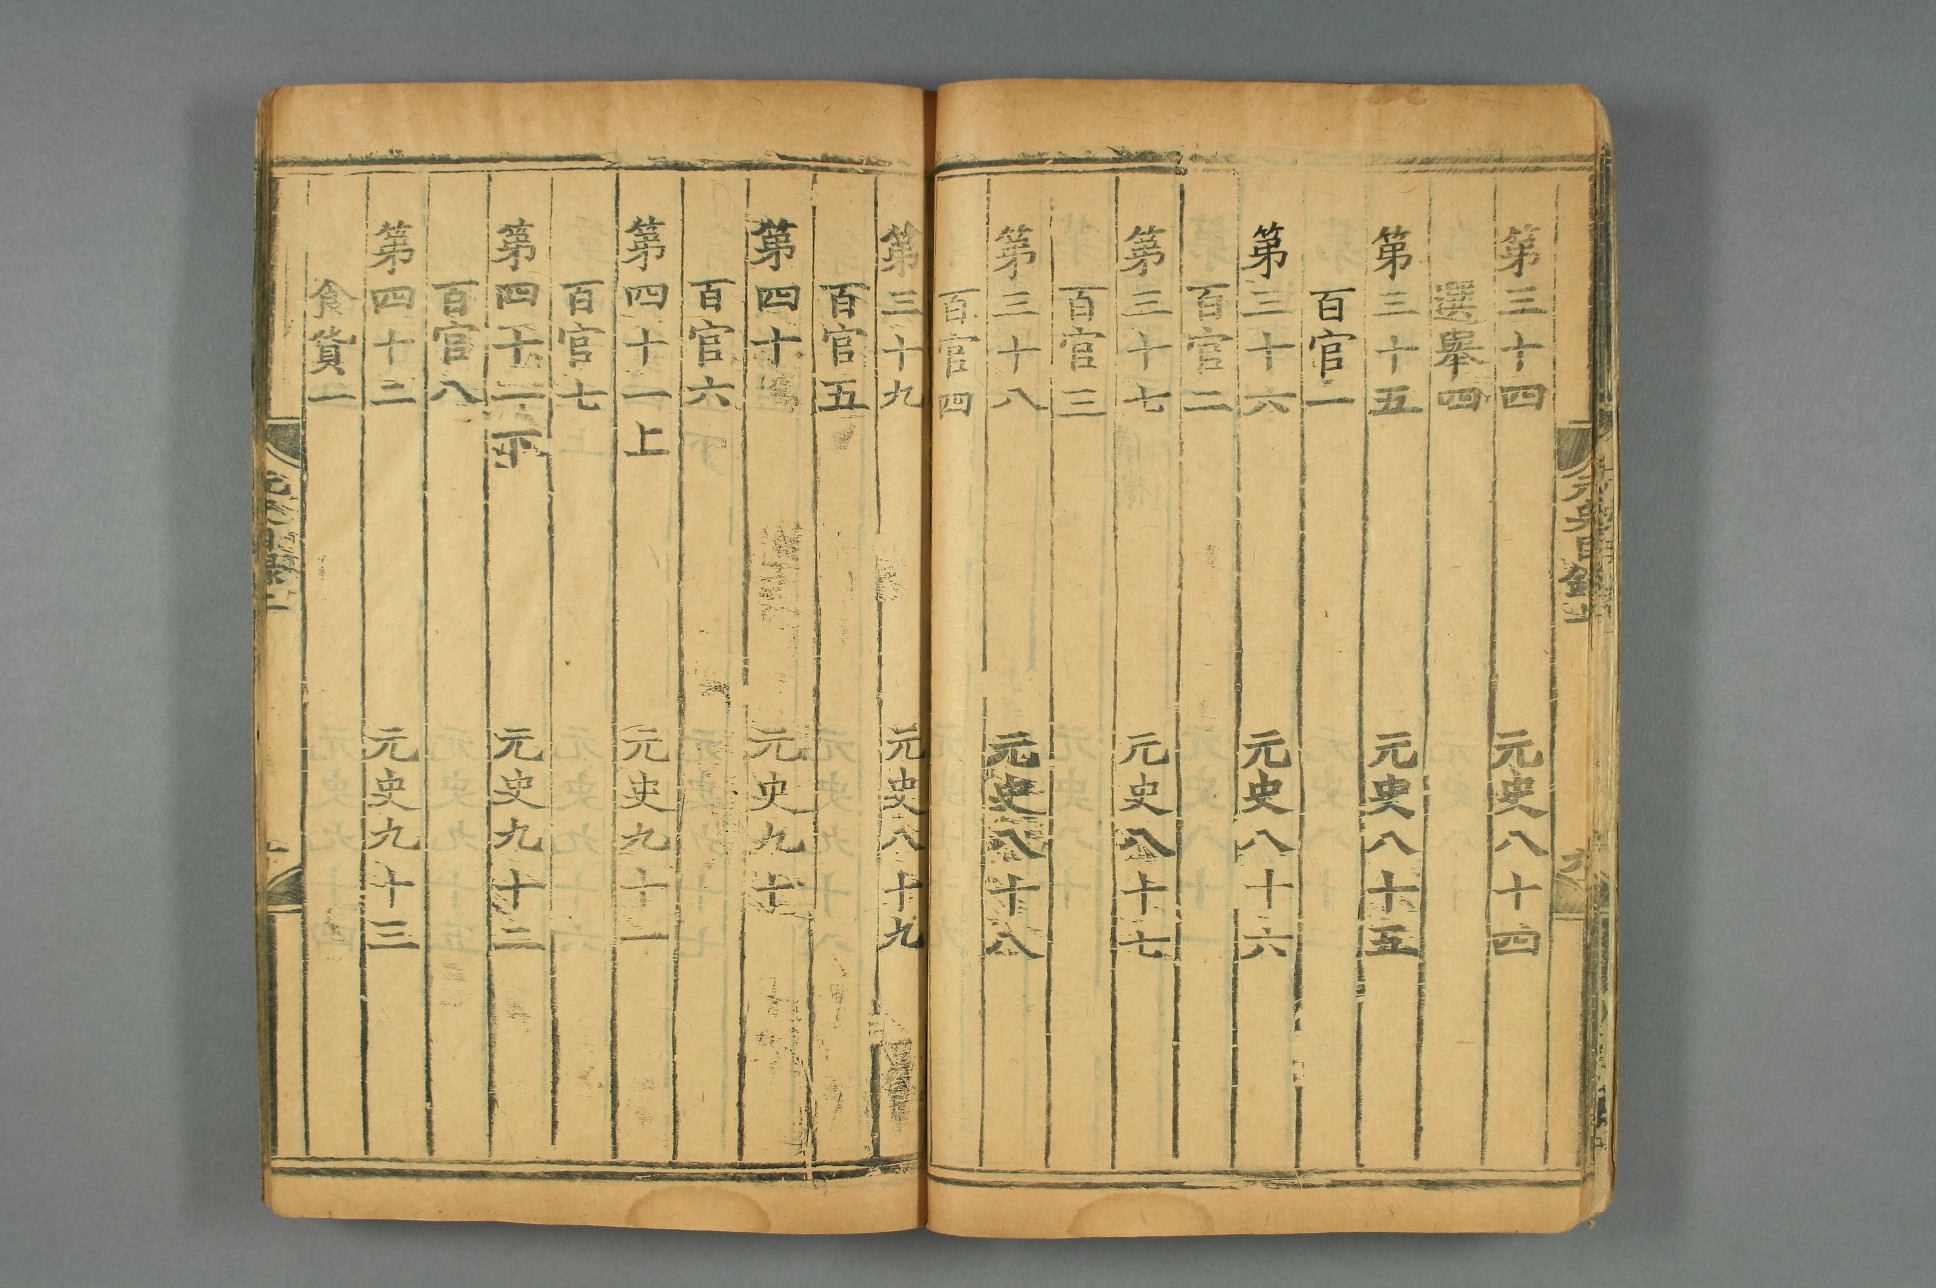 第三十四 元史八十四
選舉四
第三十五 元史八十五
百官一
第三十六 元史八十六
百官二
第三十七 元史八十七
百官三
第三十八 元史八十八
百官四
第三十九 元史八十九
百官五
第四十 元史九十
百官六
第四十一上 元史九十一
百官七
第四十一下 元史九十二
百官八
第四十二 元史九十三
食貨一